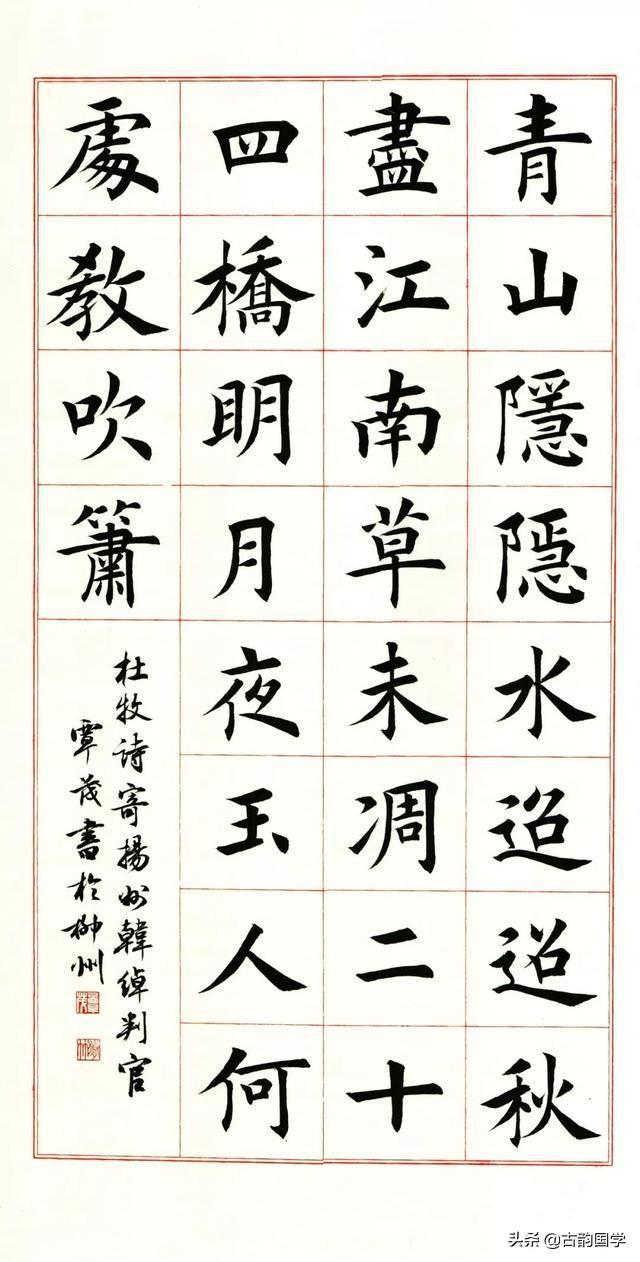 青山隱隱水迢迢秋
盡江南草未凋二十
四橋明月夜玉人何
處教吹簫
杜牧诗寄揚州韓綽判官
覃茂書於柳州
头条 @古韵国学